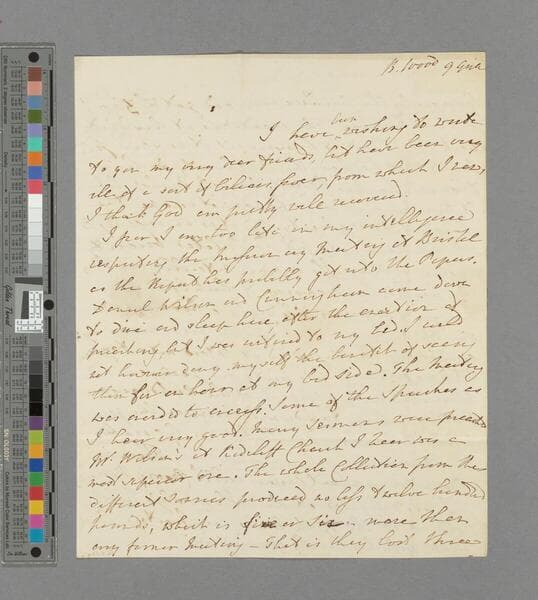 B. Wood 9
I have been wishing to write
to you my very dear friends, but have been very
ill of a sort of bilious fever, from which I am,
I thank God am pretty well recovered.
I fear I am too late in my intelligence
respecting the Missionary Meeting at Bristol
as the Report has probably got into the Papers.
Daniel Wilson and Cunningham came down
to dine and sleep here after the exertion of
preaching but I was confined to my bed. I could
not however deny myself the benefit of seeing
them for an hour at my bed side. The Meeting
was crowded to excess. Some of the Speeches as
I hear very good. Many Sermons were preached
Mr. Wilson's at Redcliff Church I hear was a
most superior one. The whole Collection from the
different Sources produced no less twelve hundred
pounds, which is five or six more than
any former Meeting - That is they took three